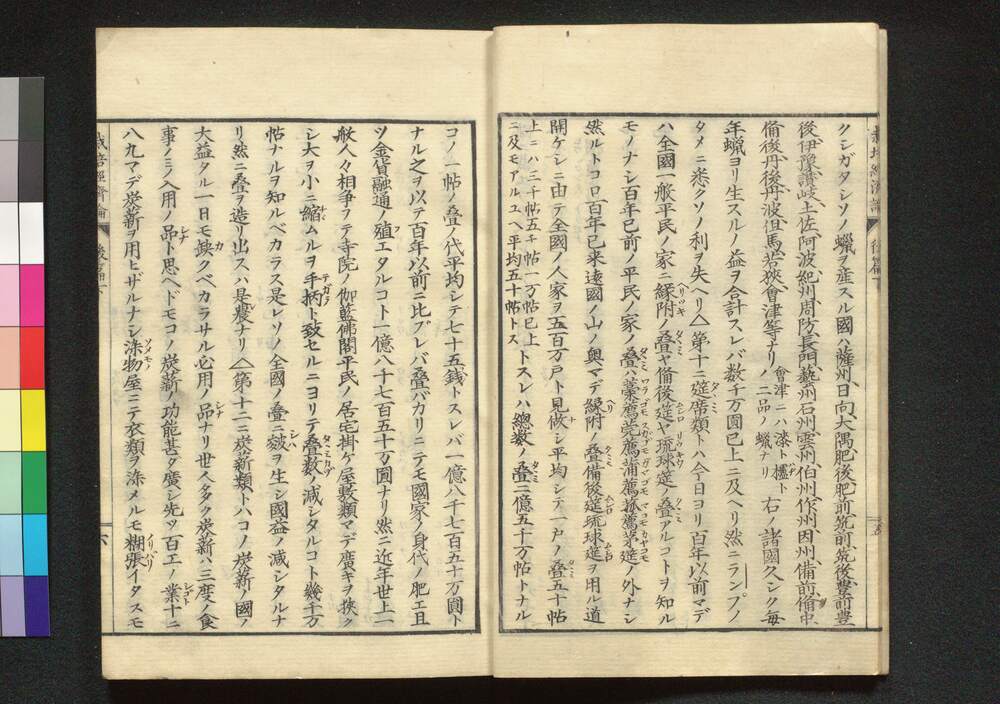 クシガタシソノ蠟ヲ産スル國ハ薩州日向大隅肥後肥前筑前筑後豊前豊
後伊豫讃岐土佐阿波紀州周防長門藝州石州雲州伯州作州因州備前備中
備後丹後丹波但馬若狹會津等ナリ會津ニハ漆ト櫨トノ二品ノ蠟ナリ右ノ諸國久シク毎
年蠟ヨリ生スルノ益ヲ合計スレバ数千万圓已上ニ及ヘリ然ニランプノ
タメニ悉クソノ利ヲ失ヘリ△第十二筵席類トハ今日ヨリ百年以前マデ
ハ全國一般平民ノ家ニ縁附ノ疊ヤ備後筵ヤ琉球筵ノ疊アルコトヲ知ル
モノナシ百年已前ノ平民ノ家ノ疊ハ藁薦莞薦蒲薦菰薦茅筵ノ外ナシ
然ルトコロ百年已来遠國ノ山ノ奥マデ縁附ノ疊備後筵琉球筵ヲ用ル道
開ケシニ由テ全國ノ人家ヲ五百万戸ト見做シ平均シテ一戸ノ疊五十帖
上ニハ三千帖五千帖一万帖已上ニ及モアルユヘ平均五十帖トストスレハ總数ノ疊二億五千万帖トナル
コノ一帖ノ疊ノ代平均シテ七十五銭トスレバ一億八千七百五十万圓ト
ナル之ヲ以テ百年以前ニ比ブレバ疊バカリニテモ國家ノ身代ノ肥エ且
ツ金貨融通ノ殖エタルコト一億八千七百五十万圓ナリ然ニ近年世上一
般人々相争フテ寺院ノ伽藍佛閣平民ノ居宅掛ケ屋敷類マデ廣キヲ狹ク
シ大ヲ小ニ縮ムルヲ手柄ト致セルニヨリテ疊数ノ減シタルコト幾千万
帖ナルヲ知ルベカラス是レソノ全國ノ疊ニ皺ヲ生シ國益ノ減シタルナ
リ然ニ疊ヲ造リ出スハ是農ナリ△第十二炭薪類トハコノ炭薪ノ國ノ
大益タル一日モ缺クベカラサル必用ノ品ナリ世人多ク炭薪ハ三度ノ食
事ノミノ入用ノ品ト思ヘドモコノ炭薪ノ功能甚タ廣シ先ッ百工ノ業十ニ
八九マデ炭薪ヲ用ヒザルナシ染物屋ニテ衣類ヲ染メルモ糊張イタスモ
栽培經濟論
後篇下
六